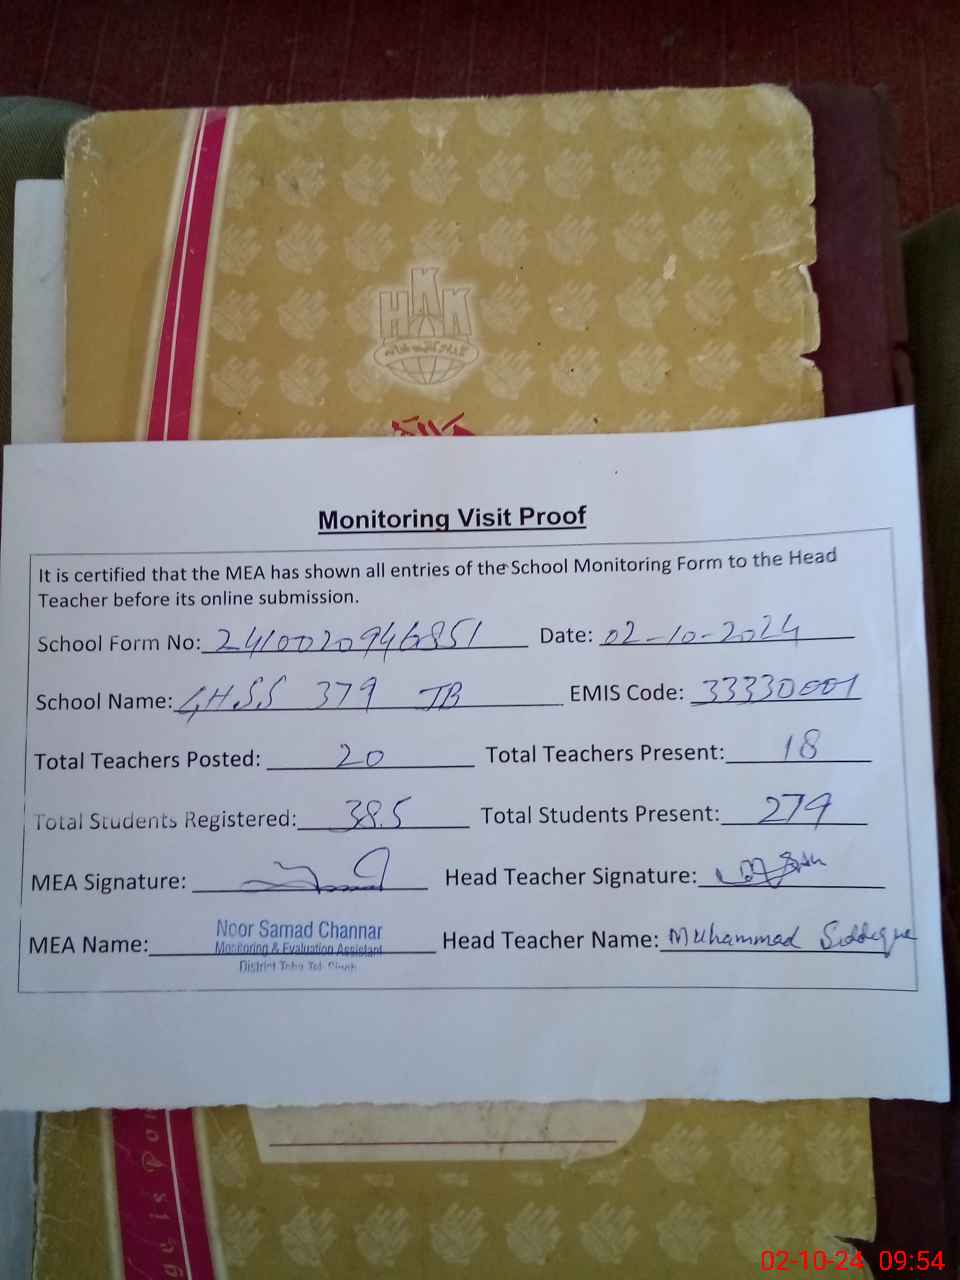 HKK
Monitoring Visit Proof
It is certified that the MEA has shown all entries of the School Monitoring Form to the Head
Teacher before its online submission.
School Form No: 2410020946851 Date: 02-10-2024
School Name: GHSS 379 JB EMIS Code: 33330001
Total Teachers Posted: 20 Total Teachers Present: 18
Total Students Registered: 385 Total Students Present: 279
MEA Signature: Head Teacher Signature:
MEA Name: Noor Samad Channar Head Teacher Name: Muhammad Siddique
Monitoring & Evaluation Assistant
District Toba Tek Singh
02-10-24 09:54